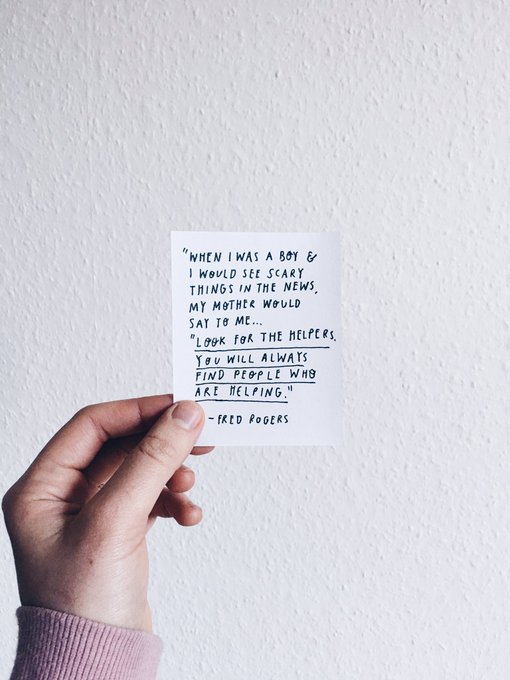 "WHEN I WAS A BOY &
I WOULD SEE SCARY
THINGS IN THE NEWS,
MY MOTHER WOULD
SAY TO ME...
"LOOK FOR THE HELPERS.
YOU WILL ALWAYS
FIND PEOPLE WHO
ARE HELPING."
- FRED ROGERS